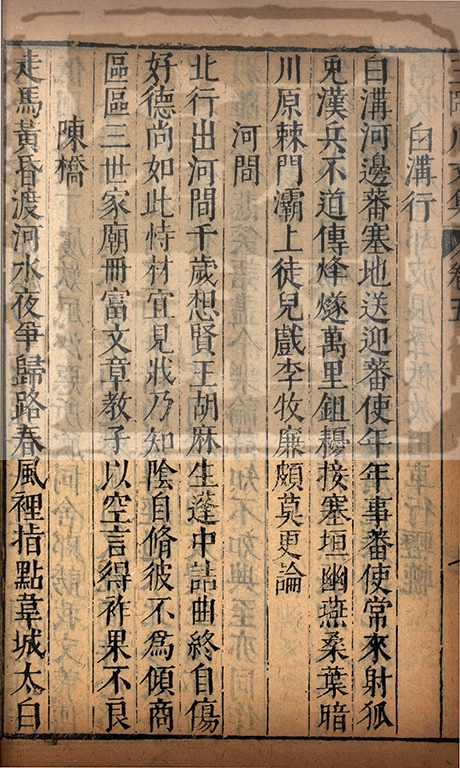 王臨川文集 卷五
白溝行
白溝河邊蕃塞地送迎蕃使年年事蕃使常來射狐
兔漢兵不道傳烽燧萬里鉏耰接塞垣幽燕桑葉暗
川原棘門灞上徒兒戲李牧廉頗莫更論
河間
北行出河間千歲想賢王胡麻生蓬中詰曲終自傷
好德尚如此恃材宜見戕乃知陰自脩彼不爲傾商
區區三世家廟冊富文章教子以空言得祚果不良
陳橋
走馬黃昏渡河水夜爭歸路春風裡指點韋城太白